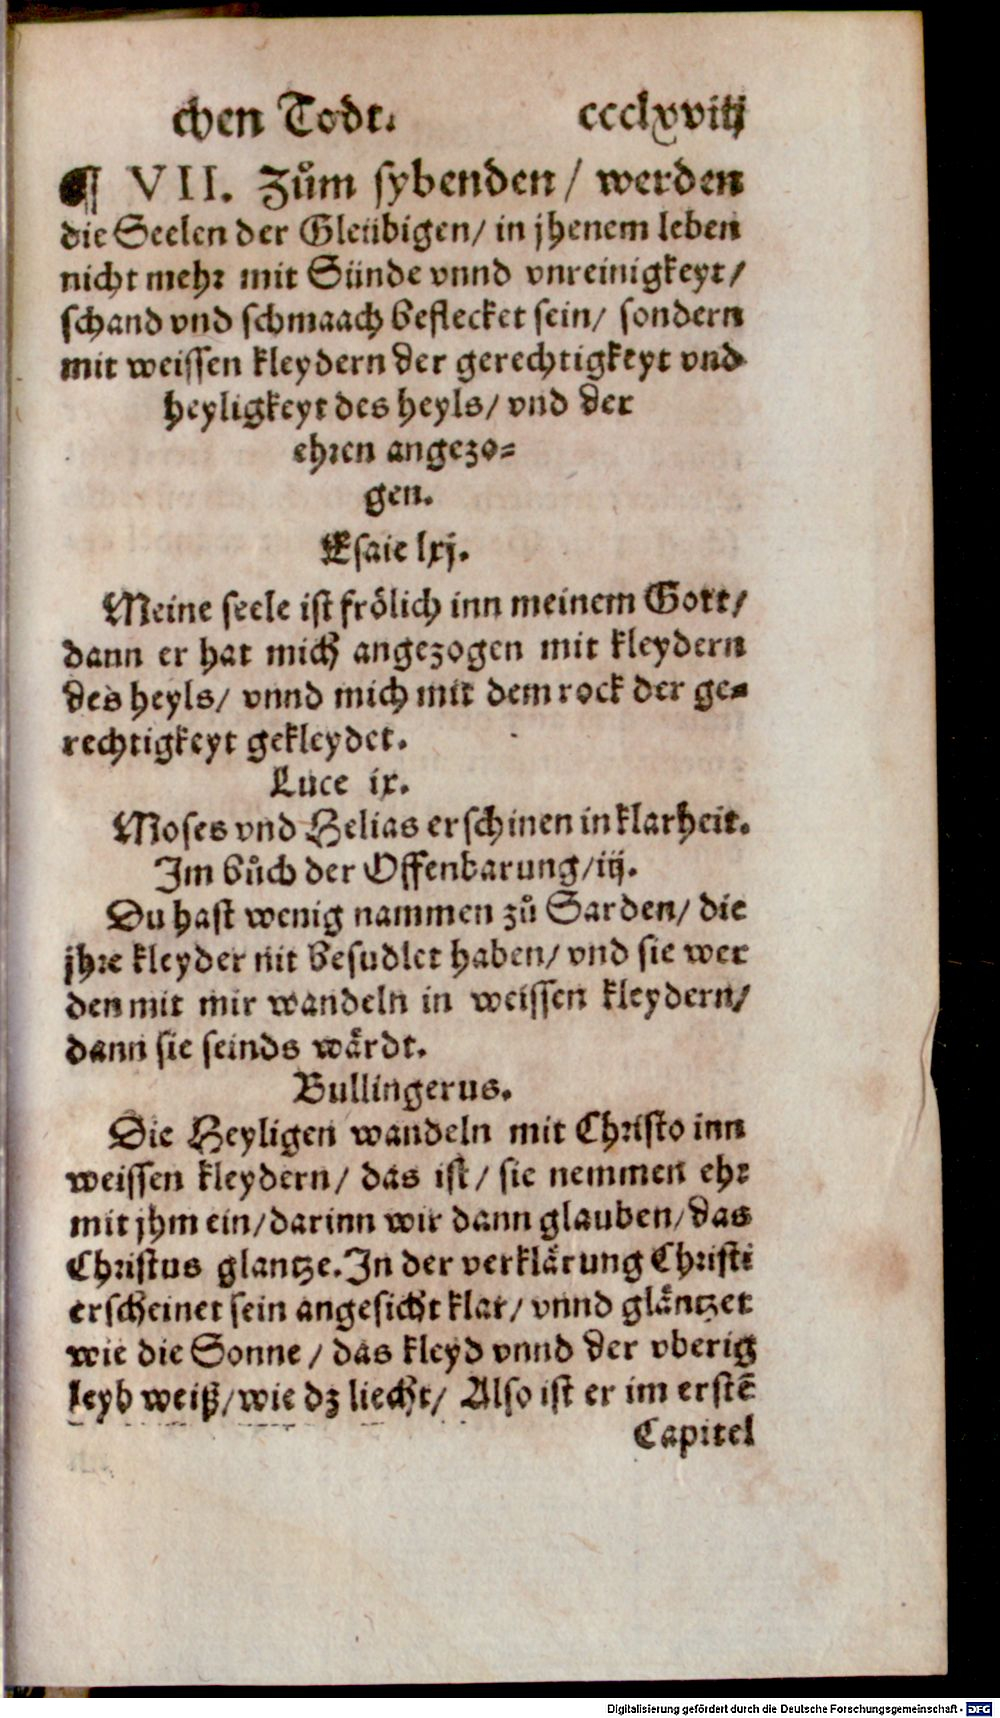 chen Todt. ccclxviij
¶ VII. Zům sybenden / werden
die Seelen der Gleübigen / in jhenem leben
nicht mehr mit Sünde vnnd vnreinigkeyt /
schand vnd schmaach beflecket sein / sondern
mit weissen kleydern der gerechtigkeyt vnd
heyligkeyt des heyls / vnd der
ehren angezo=
gen.
Esaie lxj.
Meine seele ist frölich inn meinem Gott /
dann er hat mich angezogen mit kleydern
des heyls / vnnd mich mit dem rock der ge=
rechtigkeyt gekleydet.
Luce ix.
Moses vnd Helias erschinen in klarheit.
Im bůch der Offenbarung / iij.
Du hast wenig nammen zů Sarden / die
jhre kleyder nit besudlet haben / vnd sie wer
den mit mir wandeln in weissen kleydern /
dann sie seinds wårdt.
Bullingerus.
Die Heyligen wandeln mit Christo inn
weissen kleydern / das ist / sie nemmen ehr
mit jhm ein / darinn wir dann glauben / das
Christus glantze. In der verklärung Christi
erscheinet sein angesicht klar / vnnd gläntzet
wie die Sonne / das kleyd vnnd der vberig
leyb weiß / wie dz liecht / Also ist er im erstē
Capitel
Digitalisierung gefördert durch die Deutsche Forschungsgemeinschaft - DFG